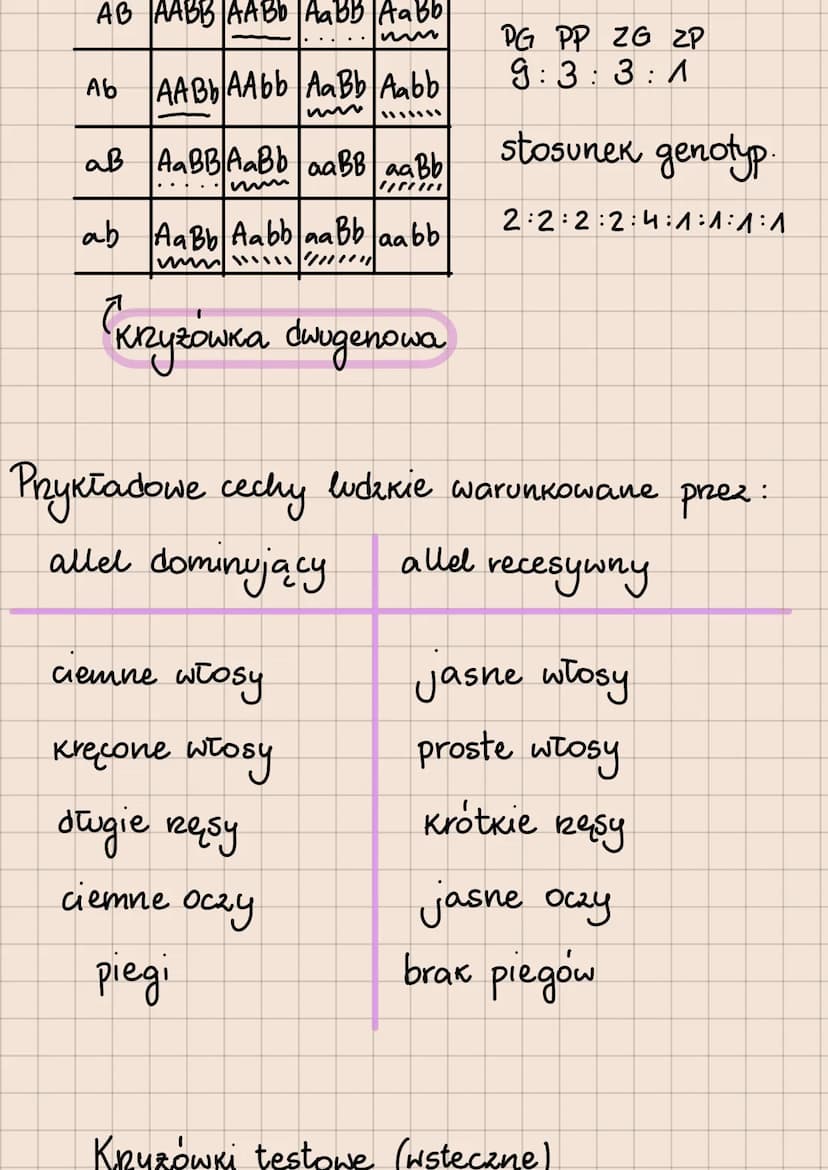 AB AABB AABb AaBB AaBb
Ab AABb AAbb AaBb Aabb
aB AaBB AaBb aaBB aaBb
ab AaBb Aabb aaBb aabb
PG PP ZG ZP
9:3:3:1
stosunek genotyp.
2:2:2:2:4:1:1:1:1
krzyżówka dwugenowa
Przykładowe cechy ludzkie warunkowane przez:
allel dominujący allel recesywny
ciemne włosy jasne włosy
kręcone włosy proste włosy
długie rzęsy krótkie rzęsy
ciemne oczy jasne oczy
piegi brak piegów
Krzyżówki testowe (wsteczne)